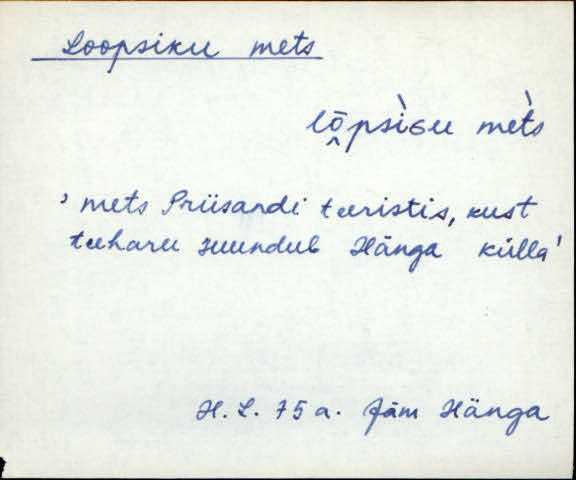 Loopsiku mets
lō̭psìɢu mèts
' mets Priisandi teeristis, kust
teeharu suundub Hänga külla '
H. L. 75 a. Jäm Hänga